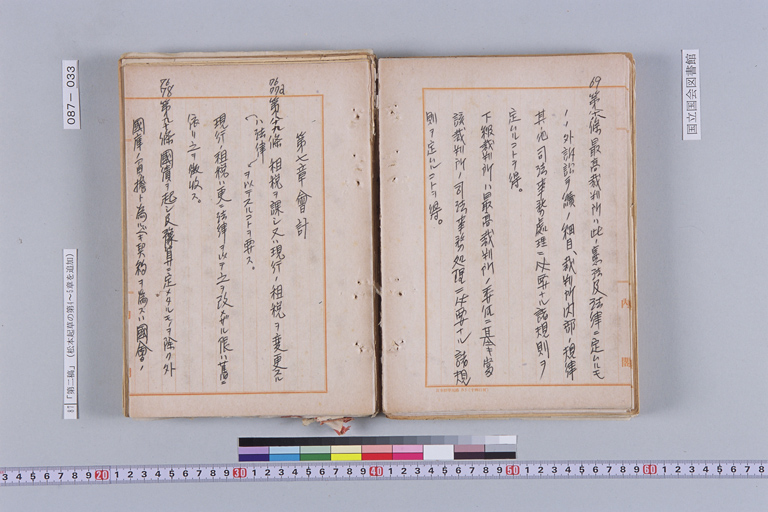 69 第六八條 最高裁判所ハ此ノ憲法及法律ニ定ムルモ
ノノ外訴訟手續ノ細目、裁判所内部ノ規律
其他司法事務處理ニ必要ナル諸規則ヲ
定ムルコトヲ得。
下級裁判所ハ最高裁判所ノ委任ニ基キ當
該裁判所ノ司法事務処理ニ必要ナル諸規
則ヲ定ムルコトヲ得。
内閣
第七章 會計
條 租税ヲ課シ又ハ現行ノ租税ヲ變更スル
ハ法律ヲ以テスルコトヲ要ス。
現行ノ租税ハ更ニ法律ヲ以テ之ヲ改メザル限ハ舊ニ
依リ之ヲ徴收ス。
條 國債ヲ起シ及豫算ニ定メタルモノヲ除ク外
國庫ノ負擔ト為ルベキ契約ヲ為スハ國會ノ
087-033
「第二稿」(松本起草の第4〜5章を追加)
国立国会図書館
3 4 5 6 7 8 9 20 1 2 3 4 5 6 7 8 9 30 1 2 3 4 5 6 7 8 9 40 1 2 3 4 5 6 7 8 9 50 1 2 3 4 5 6 7 8 9 60 1 2 3 4 5 6 7 8